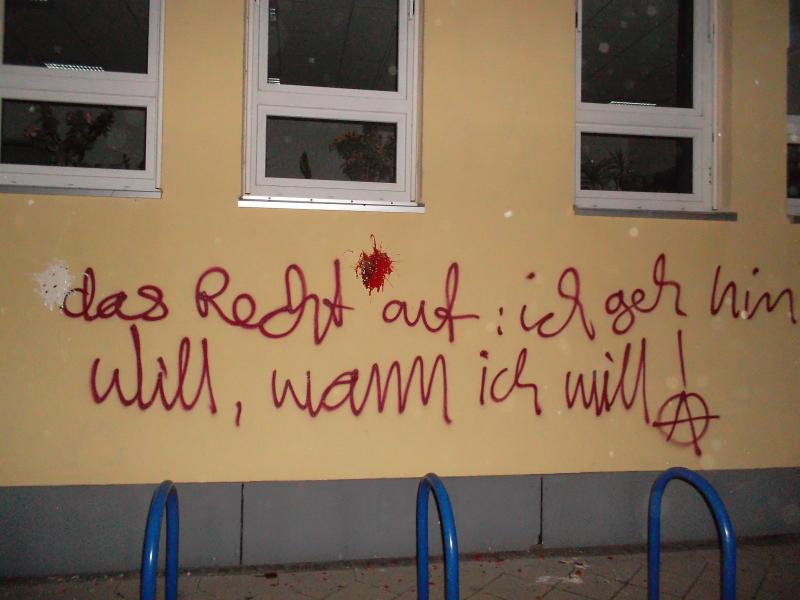 das Recht auf: ich geh hin
will, wann ich will!